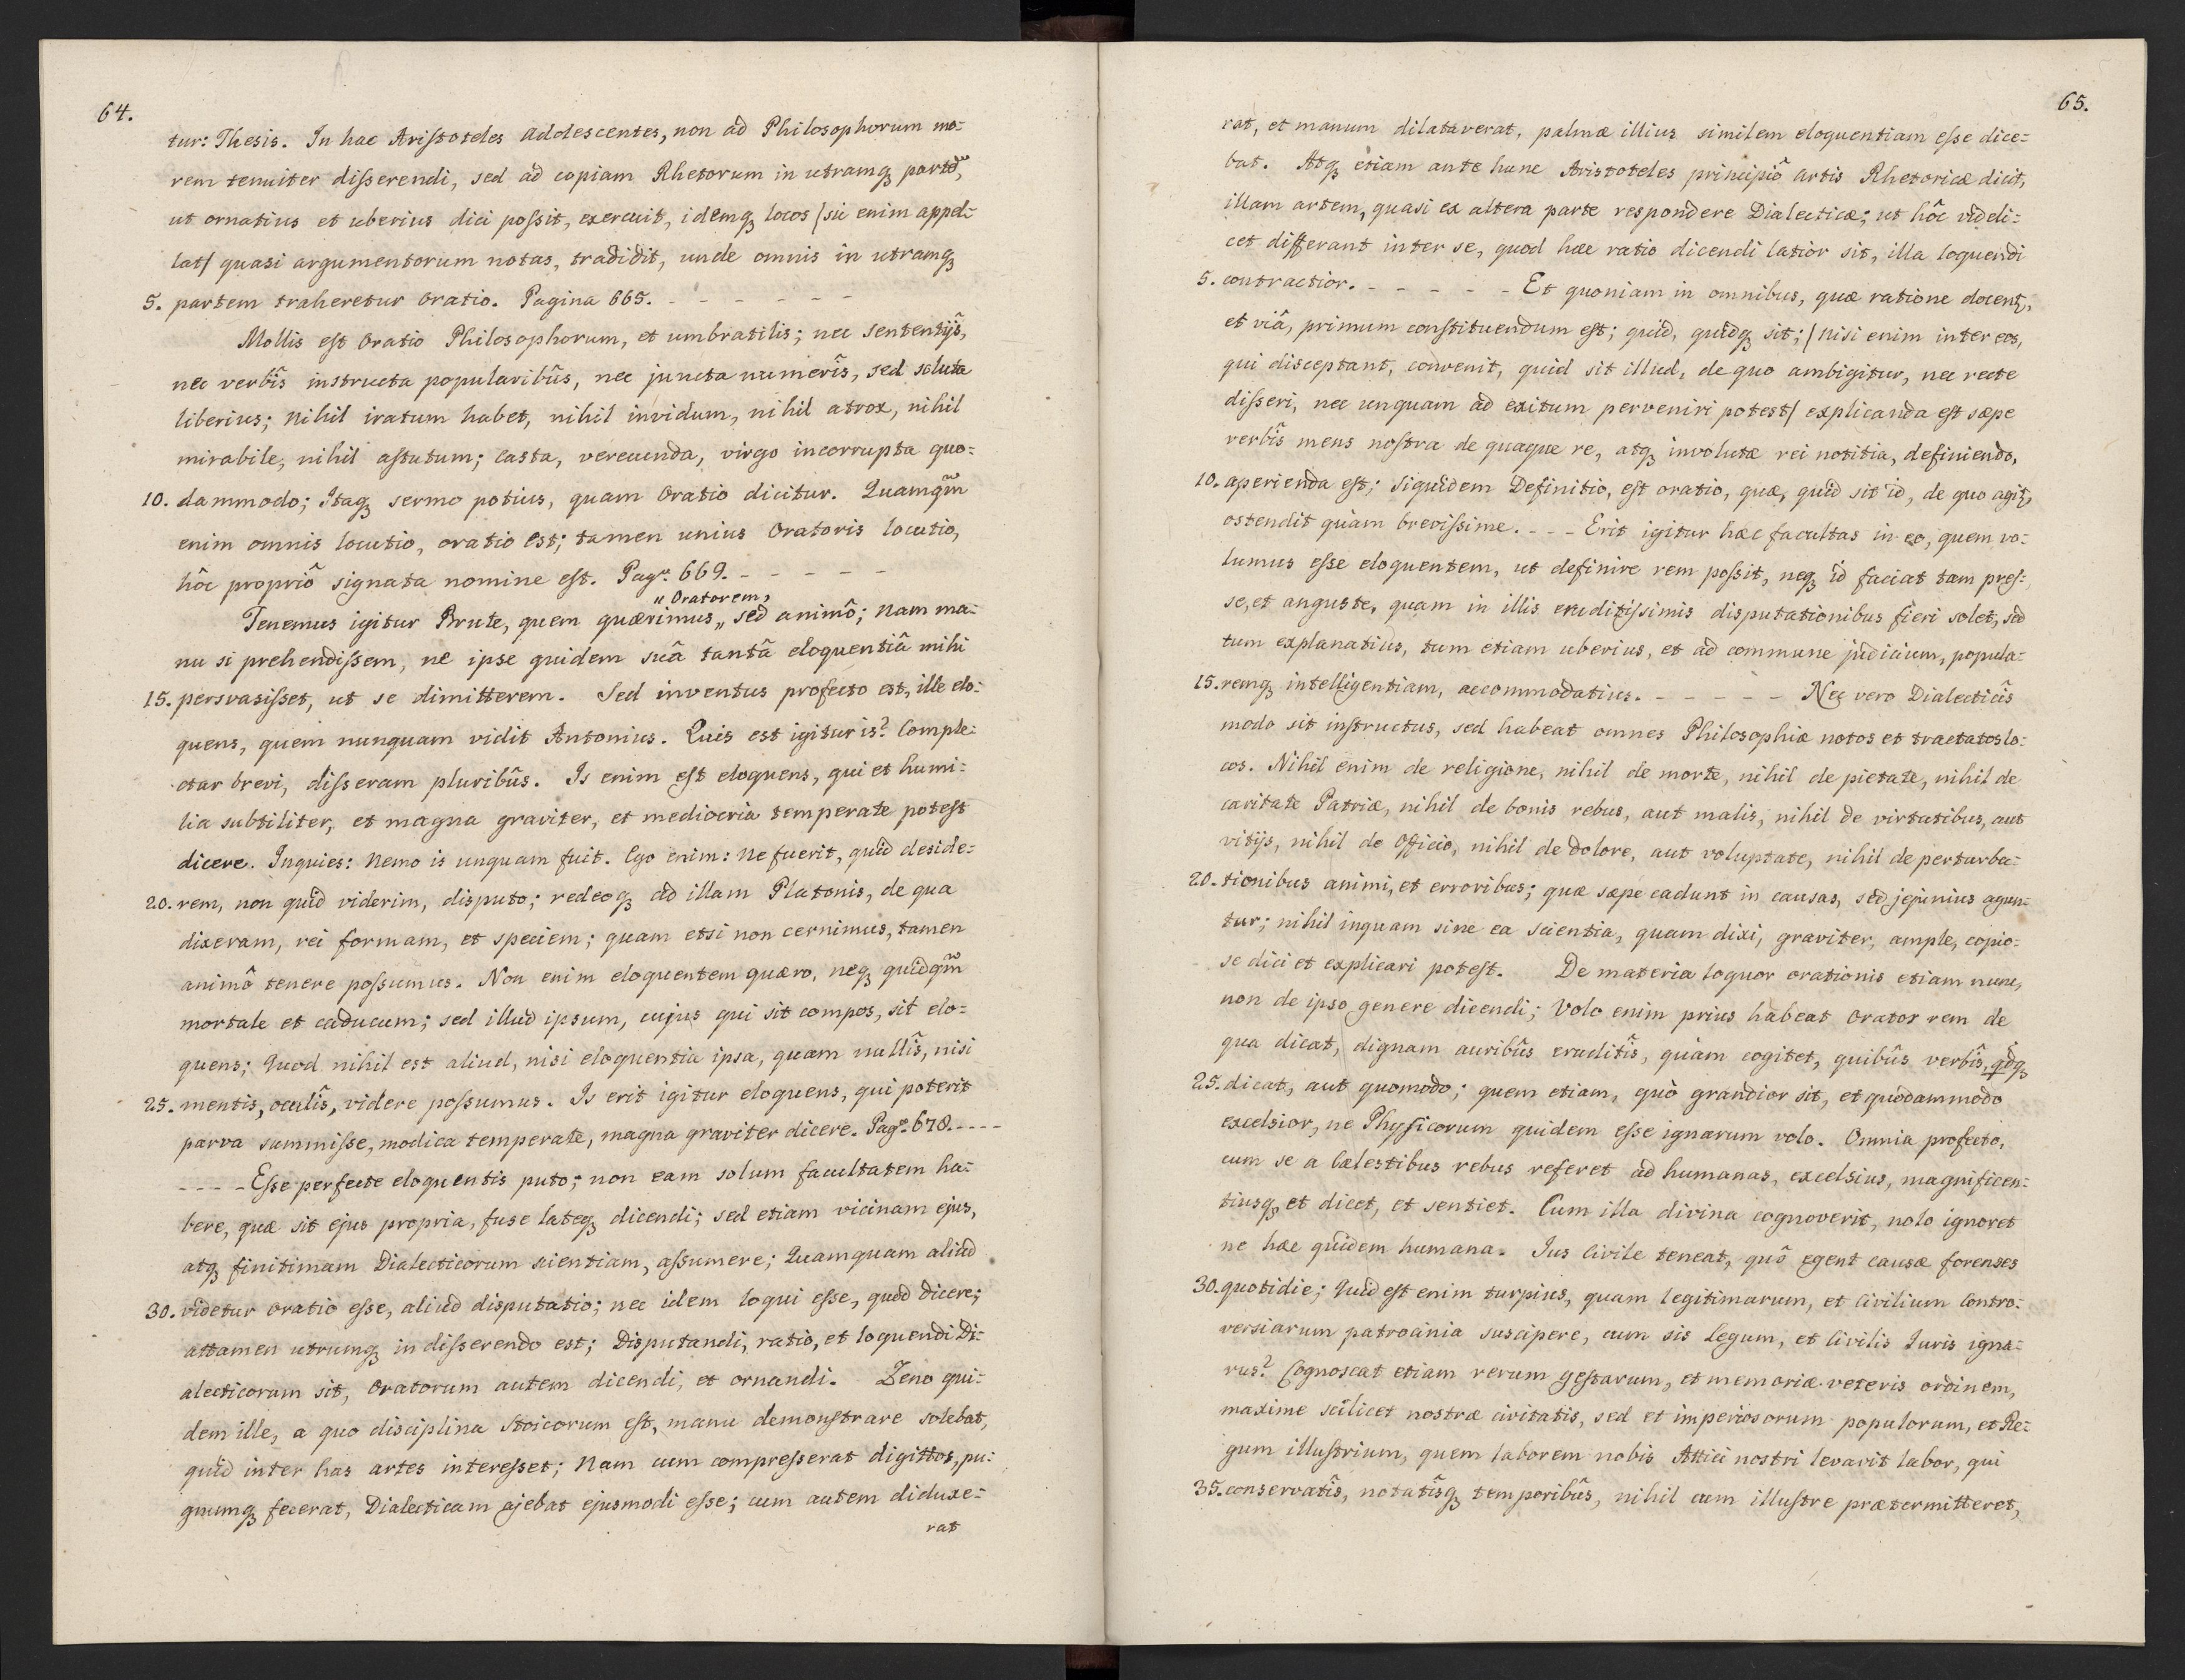 64.
tur: Thesis. In hac Aristoteles adolescentes, non ad Philosophorum mo=
rem tenuiter disserendi, sed ad copiam Rhetorum in utramq3 partē,
ut ornatius et uberius dici possit, exercuit, idemq3 locos /sic enim appel=
lat/ quasi argumentorum notas, tradidit, unde omnis in utramq3
5. partem traheretur oratio. Pagina 665. - - - - - -
Mollis est oratio Philosophorum, et umbratilis; nec sententijs,
nec verbîs instructa popularibûs, nec juncta numerîs, sed soluta
liberius; nihil iratum habet, nihil invidum, nihil atrox, nihil
mirabile, nihil astutum; casta, verecunda, virgo incorrupta quo=
10. dammodo; Itaq3 sermo potius, quam Oratio dicitur. Quamqm̃
enim omnis locutio, oratio est; tamen unius Oratoris locutio,
hôc propriô signata nomine est. Pag. 669. - - - - -
„ Oratorem,
Tenemus igitur Brute, quem quærimus „ sed animô; Nam ma=
nu si prehendissem, ne ipse quidem suâ tantâ eloquentiâ mihi
15. persvasisset, ut se dimitterem. Sed inventus profecto est, ille elo=
quens, quem nunquam vidit Antonius. Quis est igitur is? Comple=
ctar brevi, disseram pluribûs. Is enim est eloquens, qui et humi=
lia subtiliter, et magna graviter, et mediocria temperate potest
dicere. Inquies: Nemo is unquam fuit. Ego enim: Ne fuerit, quid deside=
20. rem, non quid viderim, disputo; redeoq3 ad illam Platonis, de qua
dixeram, rei formam, et speciem; quam etsi non cernimus, tamen
animô tenere possumus. Non enim eloquentem quæro, neq3 quidqm̃
mortale et caducum; sed illud ipsum, cujus qui sit compos, sit elo=
quens; Quod nihil est aliud, nisi eloquentia ipsa, quam nullîs, nisi
25. mentis, oculîs, videre possumus. Is erit igitur eloquens, qui poterit
parva summisse, modica temperate, magna graviter dicere. Pag. 678. - - - -
- - - - Esse perfecte eloquentis puto; non eam solum facultatem ha=
bere, quæ sit ejus propria, fuse lateq3 dicendi; sed etiam vicinam ejus,
atq3 finitimam Dialecticorum scientiam, assumere; Quamquam aliud
30. videtur oratio esse, aliud disputatio; nec idem loqui esse, quod dicere;
attamen utrumq3 in disserendo est; Disputandi, ratio, et loquendi Di=
alecticorum sit, Oratorum autem dicendi, et ornandi. Zeno qui=
dem ille, a quo disciplina Stoicorum est, manu demonstrare solebat,
quid inter has artes interesset; Nam cum compresserat digittos, pu=
gnumq3 fecerat, Dialecticam ajebat ejusmodi esse; cum autem diduxe=
rat
65.
rat, et manum dilataverat, palmæ illius similem eloquentiam esse dice=
bat. Atq3 etiam ante hunc Aristoteles principiô artis Rhetoricæ dicit,
illam artem, quasi ex altera parte respondere Dialecticæ; ut hôc videli=
cet differant inter se, quod hæc ratio dicendi latior sit, illa loquendi
5. contractior. - - - - - Et quoniam in omnibus, quæ ratione docent3,
et viâ, primum constituendum est; quid, quidq3 sit; /nisi enim inter eos,
qui disceptant, convenit, quid sit illud, de quo ambigitur, nec recte
disseri, nec unquam ad exitum perveniri potest/ explicanda est sæpe
verbîs mens nostra de quaque re, atq3 involutæ rei notitia, definiendo,
10. aperienda est; siquidem Definitio, est oratio, quæ, quid sit id, de quo agit3,
ostendit quàm brevissime. - - - Erit igitur hæc facultas in eo, quem vo=
lumus esse eloquentem, ut definire rem possit, neq3 id faciat tam pres=
se, et anguste, quam in illis eruditissimis disputationibus fieri solet, sed
tum explanatius, tum etiam uberius, et ad commune judicium, popula=
15. remq3 intelligentiam, accommodatius. - - - - - Nec vero Dialecticîs
modo sit instructus, sed habeat omnes Philosophiæ notos et tractatos lo=
cos. Nihil enim de religione, nihil de morte, nihil de pietate, nihil de
caritate Patriæ, nihil de bonis rebus, aut malis, nihil de virtutibus, aut
vitijs, nihil de Officio, nihil de dolore, aut voluptate, nihil de perturba=
20. tionibus animi, et erroribus; quæ sæpe cadunt in causas, sed jejunius agun=
tur; nihil inquam sine ea scientia, quam dixi, graviter, ample, copio=
se dici et explicari potest. De materia loquor orationis etiam nunc,
non de ipso genere dicendi; Volo enim prius habeat Orator rem de
qua dicat, dignam auribûs eruditîs, quàm cogitet, quibûs verbîs, qdq3
25. dicat, aut quomodo; quem etiam, quò grandior sit, et quodammodo
excelsior, ne Physicorum quidem esse ignarum volo. Omnia profecto,
cum se a Cælestibus rebus referet ad humanas, excelsius, magnificen=
tiusq3 et dicet, et sentiet. Cum illa divina cognoverit, nolo ignoret
ne hæc quidem humana. Ius Civile teneat, quô egent causæ forenses
30. quotidie; Quid est enim turpius, quam legitimarum, et Civilium Contro=
versiarum patrocinia suscipere, cum sis Legum, et Civilis Iuris igna=
rus? Cognoscat etiam rerum gestarum, et memoriæ veteris ordinem,
maxime scilicet nostræ civitatis, sed et imperiosorum populorum, et Re=
gum illustrium, quem laborem nobis Attici nostri levavit labor, qui
35. conservatîs, notatîsq3 temporibûs, nihil cum illustre prætermitteret,